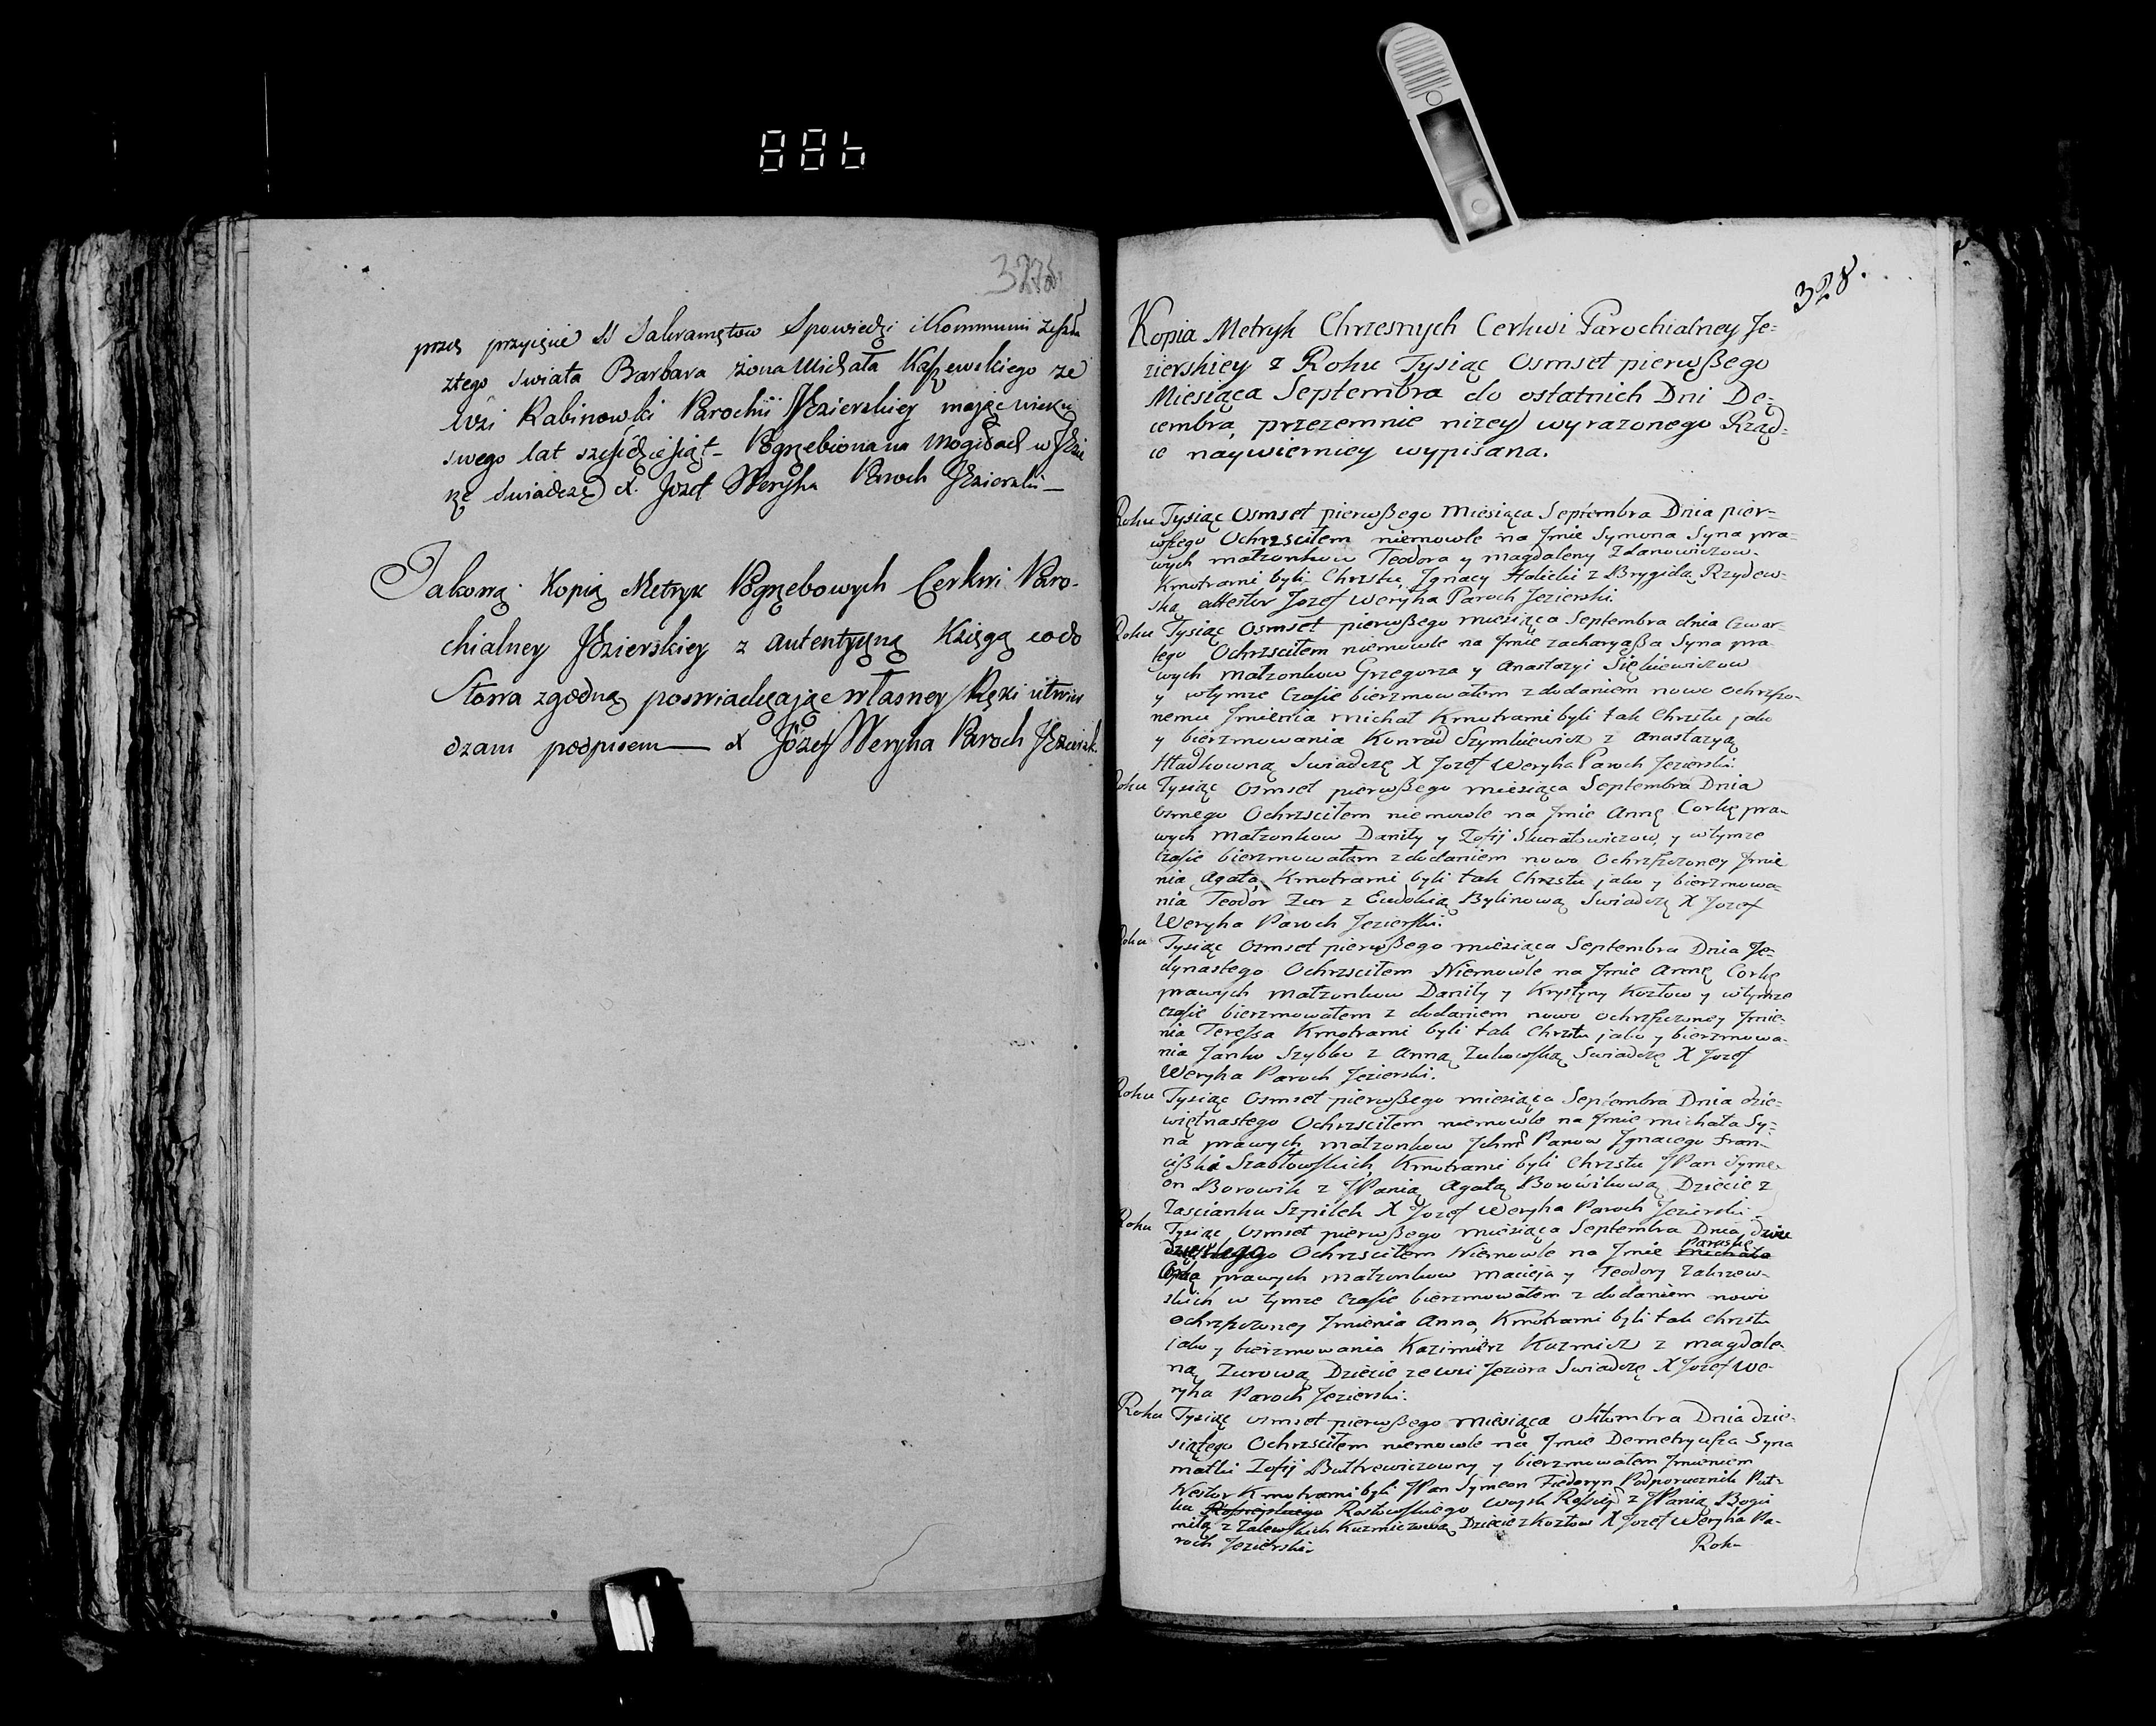 886
327
przez przyięcie SS Sakramętow Spowiedzi i Kommunii zeszła
ztego swiata Barbara żona Michała Kaszewskiego ze
Wsi Rabinowki Parochii JEzierskiey mające wieku
swego lat sześćdziesiąt – Pogrzebiona na Mogiłach w JEzie
rzę Swiadczę X. Jozef Weryha Paroch JEzierski –
Jakową Kopią Metryk Pogrzebowych Cerkwi Paro-
chialney JEzierskiey z autentyczną Księgą codo
Słowa zgodną poswiadczając własney Ręki utwier
dzam podpisem — X Józef Weryha Paroch JEziersk.
328.
Kopia Metryk Chrzesnych Cerkwi Parochialney Je=
zierskiey z Roku Tysiąc Osmset pierwßego
Miesiąca Septembra do ostatnich Dni De=
cembra, przezemnie nizey wyrazonego Rząd=
ie naywierniey wypisana.
Roku Tysiąc Osmset pierwßego Miesiąca Septembra Dnia pier-
wszego Ochrzsciłem niemowle na Jmie Symona Syna pra-
wych małzonkow Teodora y magdaleny Zdanowiczow.
Kmotrami byli Chrzstu, Jgnacy Halicki z Brygidą Rzydew-
ską attestor Jozef Weryha Paroch Jezierski
Roku Tysiąc Osmset pierwßego miesiąca Septembra dnia Czwar-
tego Ochrzsciłem niemowle na Jmie zacharyaßa Syna pra
wych Małzonkow Grzegorza y Anastazyi Siękiewiczow
y wtymze Czasie bierzmowałem z dodaniem nowo ochrzszo-
nemu Jmienia michał Kmotrami byli tak Chrzstu jako
y bierzmowania Konrad Szymkiewicz z Anastazyą
Hładkowną Swiadczę X Jozef Weryha Paroch Jezierski.
Roku Tysiąc Osmset pierwßego miesiąca Septembra Dnia
osmego Ochrzsciłem niemowle na Jmie Annę Corkę pra-
wych Małzonkow Daniły y Zofij Skuratowiczow, y wtymze
czasie bierzmowałem z dodaniem nowo Ochrzszczoney Jmie
nia Agata, Kmotrami byli tak Chrzstu jako y bierzmowa-
nia Teodor Zur z Eudokią Bylinową Swiadczę X Jozef
Weryha Paroch Jezierski.
Roku Tysiąc Osmset pierwßego miesiąca Septembra Dnia Je-
dynastego Ochrzsciłem Niemowle na Jmie Annę Corkę
prawych małzonkow Daniły y Krystyny Kozłow y wtymze
czasie bierzmowałem z dodaniem nowo ochrzszczoney Jmie-
nia Teressa Kmotrami byli tak Chrzstu jako y bierzmowa-
nia Janko Szybko z Anną Zukowską Swiadczę X Jozef
Weryha Paroch Jezierski.
Roku Tysiąc Osmset pierwßego miesiąca Septembra Dnia dzie=
więtnastego Ochrzsciłem niemowle na Jmie michała Sy=
na prawych małzonkow Panow Jgnacego Fran-
cißka Szabłowskich, Kmotrami byli Chrzstu JPan Syme
on Borowik z JPanią Agatą Borowikową Dziecie z
Zascianku Szpilek X Jozef Weryha Paroch Jezierski.
Roku Tysiąc Osmset pierwßego miesiąca Septembra Dnia dwu
dziestego Ochrzsciłem Niemowle na Jmie Paraskę michała
Corkę prawych małzonkow macieja y Teodory Zakrzew-
skich w tymze Czasie bierzmowałem z dodaniem nowo
ochrzszczoney Jmienia Anna, Kmotrami byli tak chrzstu
jako y bierzmowania Kazimierz Kuzmicz z magdale-
ną Zurową Dziecie ze wsi Jeziora Swiadczę X Jozef We-
ryha Paroch Jezierski.
Roku Tysiąc osmset pierwßego miesiąca oktombra Dnia dzie-
siątego Ochrzsciłem niemowle na Jmie Demetryusza Syna
matki Zofij Butkrewiczowny y bierzmowałem Jmieniem
Nestor Kmotrami byli JPan Symeon Fiedoryn Podporucznik Puł-
ku Rostowskiego Woysk Rossiy z JPanią Bogu
miłą z Zalewskich Kuzmiczową Dziecie z Kozłow X Jozef Weryha Pa-
roch Jezierski.
Roku